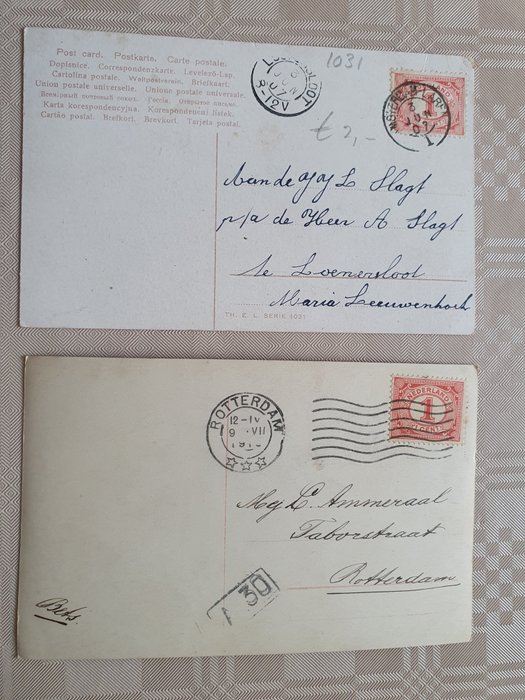 Post card. Postkarte. Carte postale.
Dopisnice. Correspondenzkarte. Levelező-Lap.
Cartolina postale. Weltpostverein. Briefkaart.
Union postale universelle. Unione postale universale.
Всемірный почтовый союзъ. Россія. Открытое письмо.
Karta korespondencyjna. Korespondenční lístek.
Cartão postal. Brefkort. Brevkort. Tarjeta postal.
1031
8-12V
€ 2,-
1
Aan de
L Slagt
p/a de Heer A Slagt
te Loenersloot
Maria Leeuwenhoek
TH. E. L. SERIE 1031
ROTTERDAM
12-IV
9 VII
NEDERLAND
1
CENT
Mej C. Ammeraal
Taborstraat
Rotterdam
30
Bets.